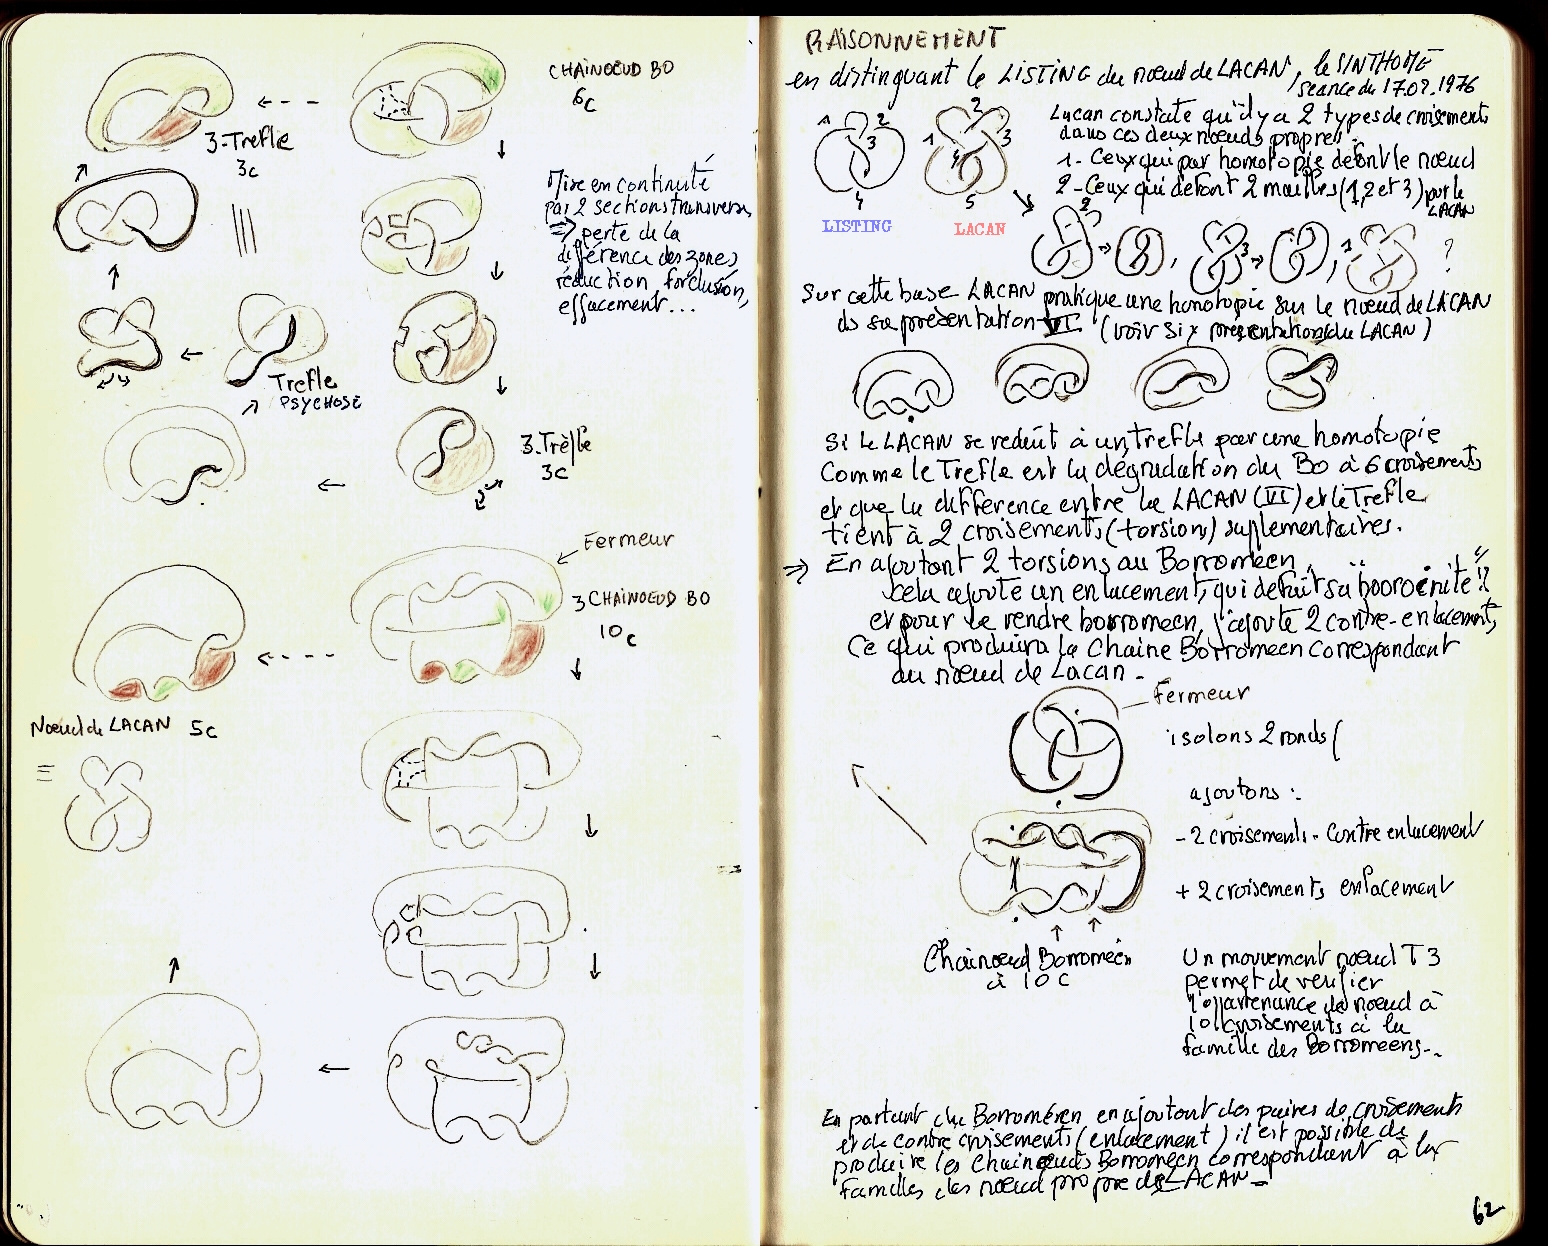 CHAINOEUD BO
6c
3-Trefle
3c
Mise en continuité
par 2 sections transverses
=> perte de la
différence des zones
réduction, forclusion,
effacement...
Trefle
PSYCHOSE
3.Trèfle
3c
Fermeur
3 CHAINOEUD BO
10c
Noeud de LACAN 5c
RAISONNEMENT
en distinguant le LISTING du nœud de LACAN, le SINTHOME
séance du 17.02.1976
1 2 3 4
1 2 3 4 5
LISTING
LACAN
Lacan constate qu'il y a 2 types de croisements
dans ces deux nœuds propres :
1- Ceux qui par homotopie défont le nœud
2- Ceux qui défont 2 mailles (1,2 et 3) pour le
LACAN
2 , 3 , 1 ?
Sur cette base LACAN pratique une homotopie sur le nœud de LACAN
ds sa présentation VI (voir six présentations du LACAN)
Si le LACAN se réduit à un trefle par une homotopie
Comme le Trefle est la dégradation du Bo à 6 croisements
et que la différence entre le LACAN (VI) et le Trefle
tient à 2 croisements (torsion) suplementaires.
=> En ajoutant 2 torsions au Borromeen,
cela ajoute un enlacement, qui défait sa
et pour le rendre borromeen, j'ajoute 2 contre-enlacements,
Ce qui produira la Chaine Borromeen correspondant
au nœud de Lacan -
Fermeur
isolons 2 ronds (
ajoutons :
- 2 croisements - contre enlacement
+ 2 croisements enlacement
Chainoeud Borroméen
à 10 c
Un mouvement nœud T3
permet de verifier
l'appartenance du nœud à
10 croisements à la
famille des Borromeens...
En partant du Borroméen en ajoutant des paires de croisements
et de contre croisements (enlacement) il est possible de
produire les Chainœuds Borromeen correspondant à la
familles des nœud propre de LACAN -
62